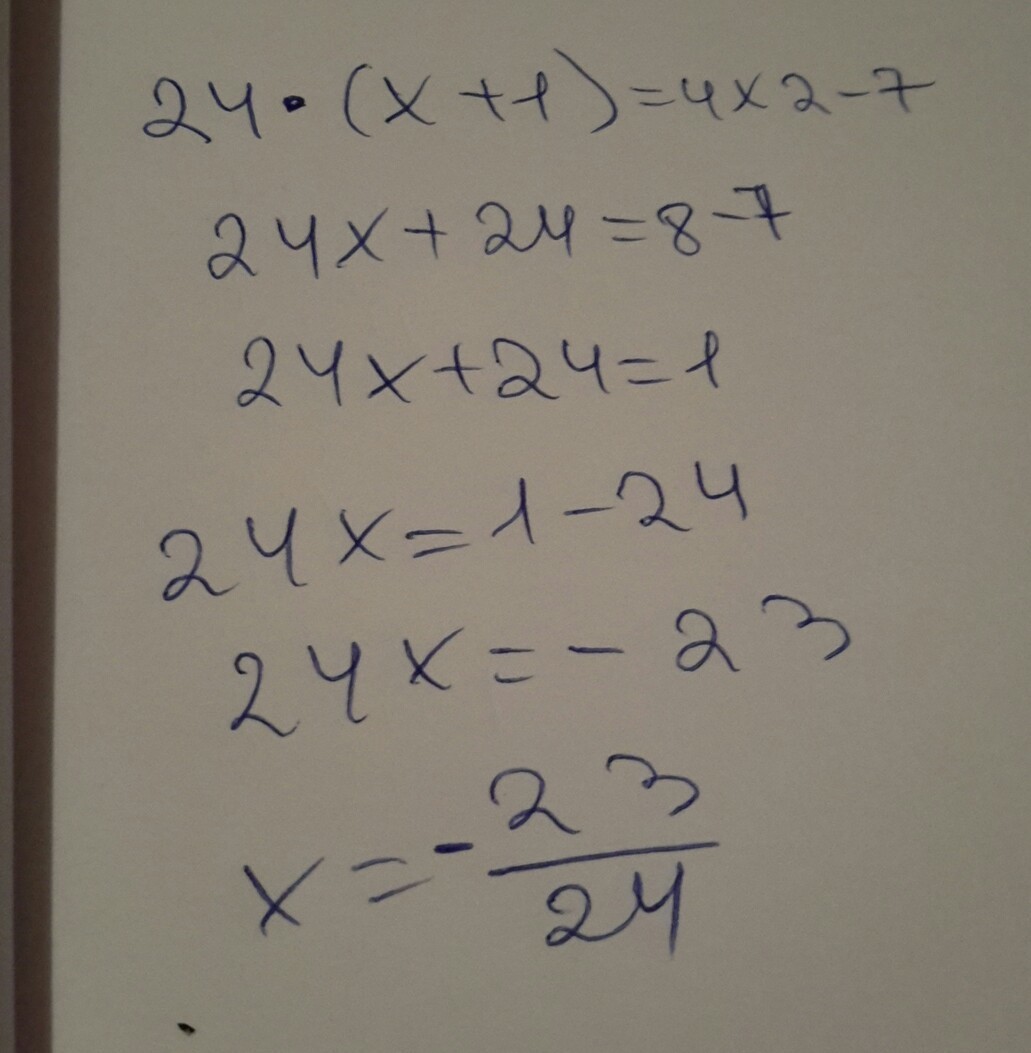 24·(x+1)=4x2-7
24x+24=8-7
24x+24=1
24x=1-24
24x=-23
x=-23/24